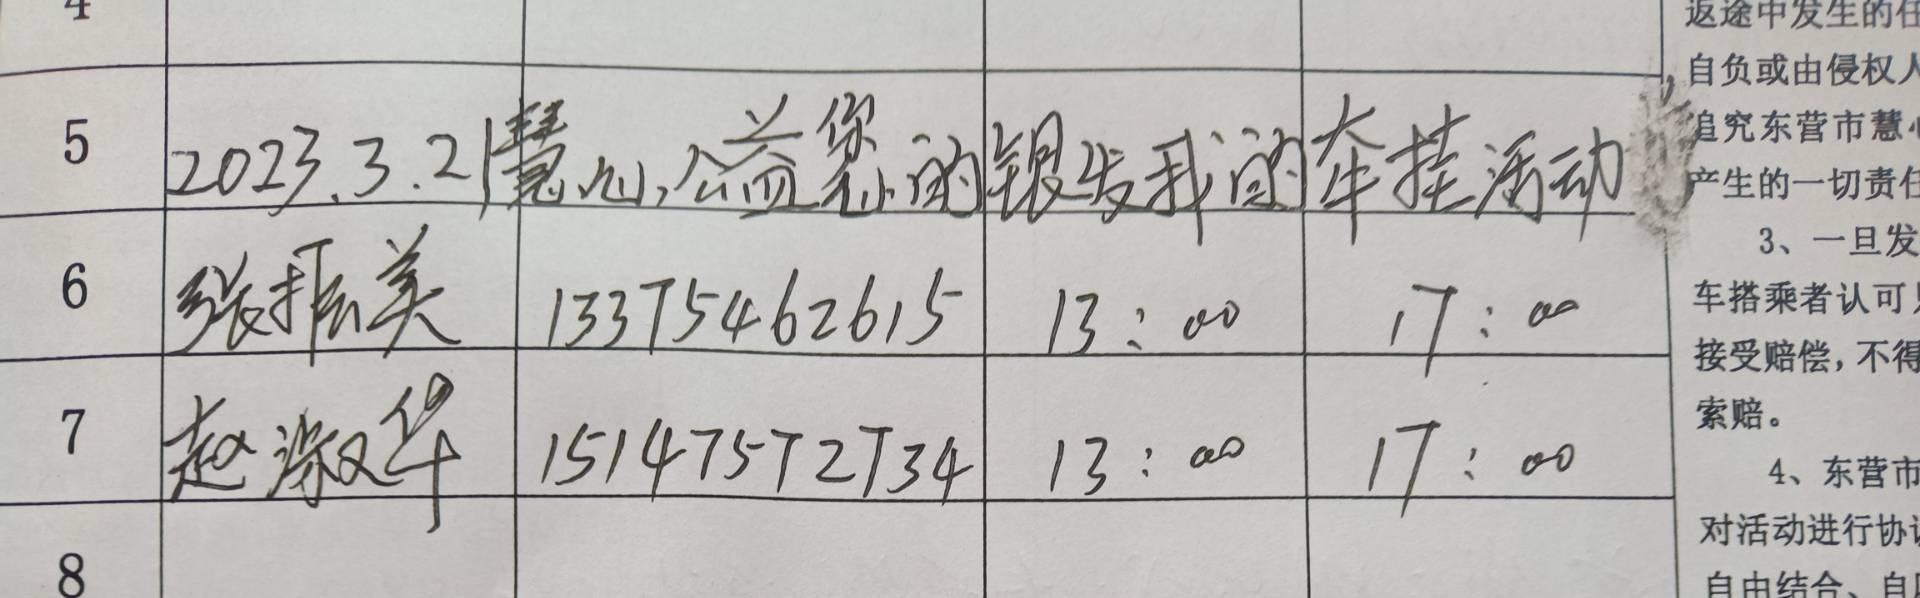 4
返途中发生的任
自负或由侵权人
5 2023.3.21慧心公益您的银发我的牵挂活动
追究东营市慧心
产生的一切责任
3、一旦发
6 张振美 13375462615 13:00 17:00
车搭乘者认可
接受赔偿,不得
索赔。
7 赵淑华 15147572734 13:00 17:00
4、东营市
对活动进行协议
8
自由结合、自